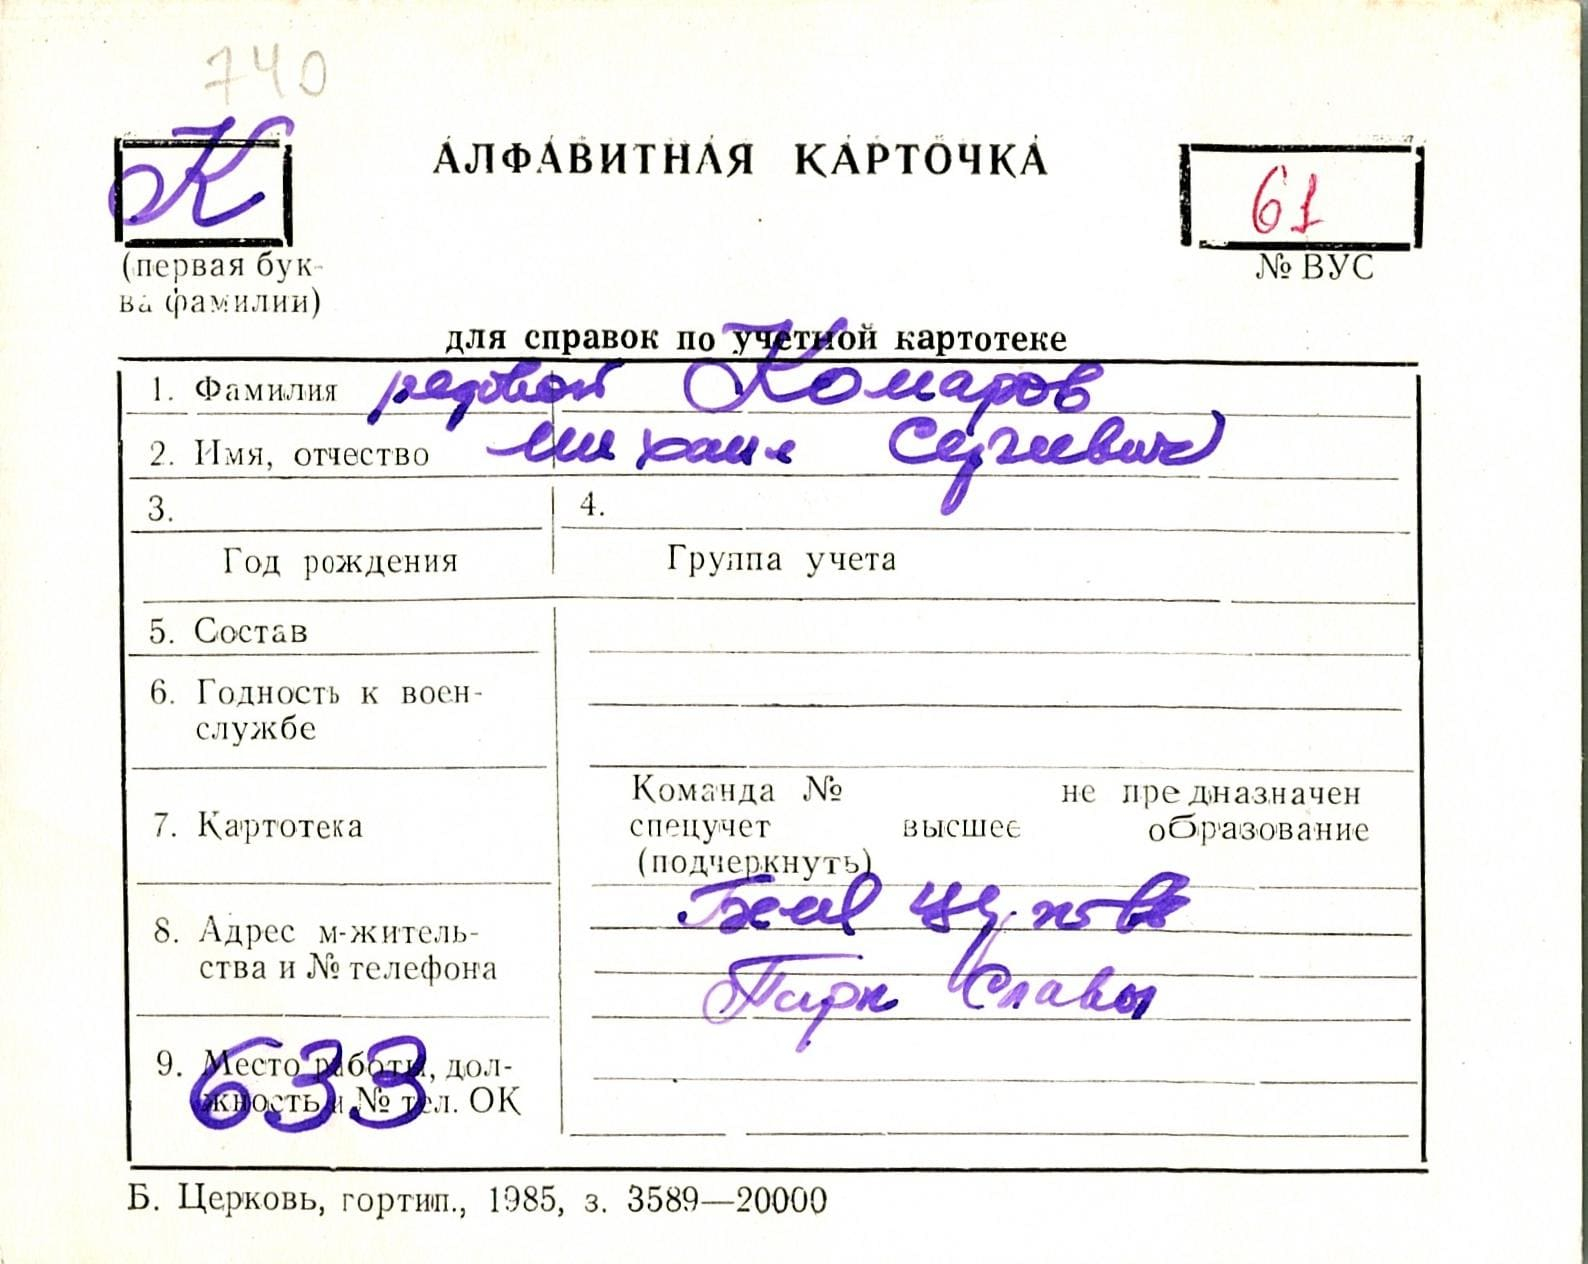 740
К
АЛФАВИТНАЯ КАРТОЧКА
61
(первая бук-
ва фамилии)
№ ВУС
для справок по учетной картотеке
1. Фамилия рядовой Комаров
2. Имя, отчество Михаил Сергеевич
3.
4.
Год рождения
Группа учета
5. Состав
6. Годность к воен-
службе
7. Картотека
Команда № не предназначен
спецучет высшее образование
(подчеркнуть)
8. Адрес м-житель-
ства и № телефона
Парк Славы
9. Место работы, дол-
жность и № тел. ОК
633
Б. Церковь, гортип., 1985, з. 3589—20000